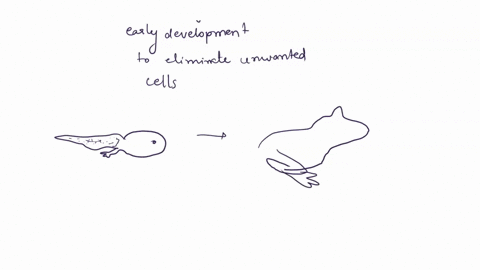 early development
to eliminate unwanted
cells